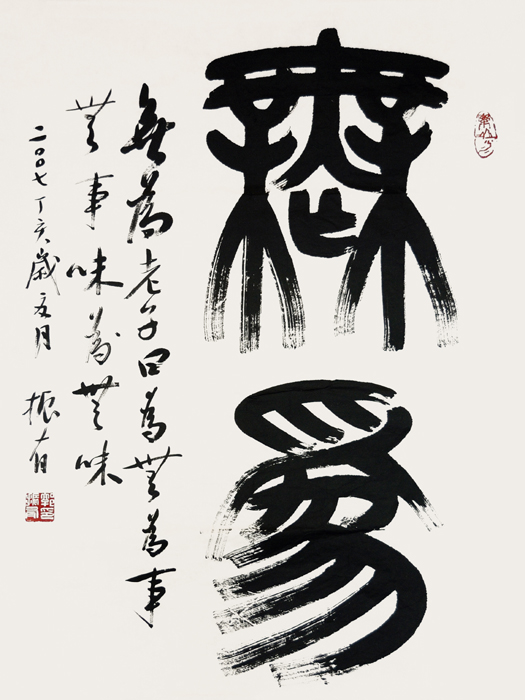 無為
無為老子曰為無為事
無事味為無味
二〇〇七丁亥歲五月 振有